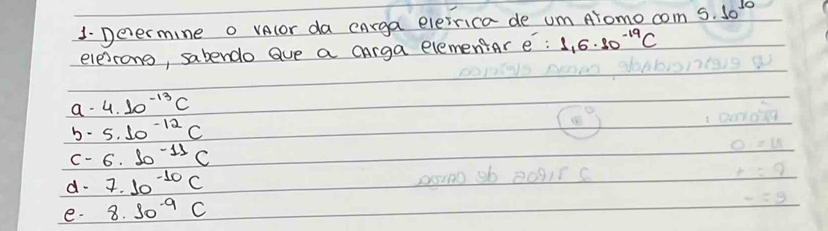 1. Determine o valor da carga eletrica de um Atomo com 5.10¹⁰
eletrons, sabendo Que a carga elementar é: 1,6.10⁻¹⁹C
a - 4.10⁻¹³C
b - 5.10⁻¹² C
c - 6.10⁻¹¹ C
d - 7.10⁻¹⁰ C
e - 8.10⁻⁹ C